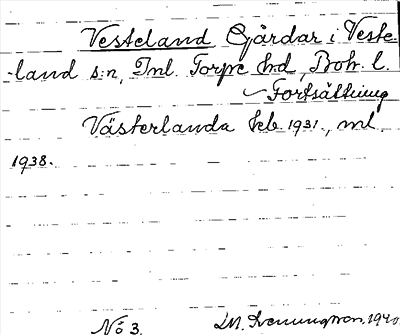 Vesteland Gårdar i Veste-
land s:n, Inl. Torpe hd, Boh. l.
Fortsättning
Västerlanda Keb 1931., ml,
1938.
No 3. 1940